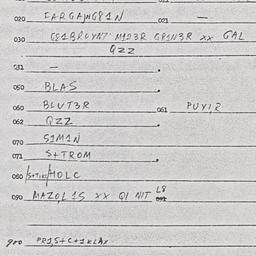 020 IARGAMGP1N 021 —
030 GE1BRUYNT M1D3R GP1N3R xx GAL
QZZ
031 —
050 BLAS
060 BLUT3R 061 PUYIR
062 QZZ
070 S1M1N
071 S+TROM
080 HOLC
090 MAZOL 1S xx Q1 NIT L8
900